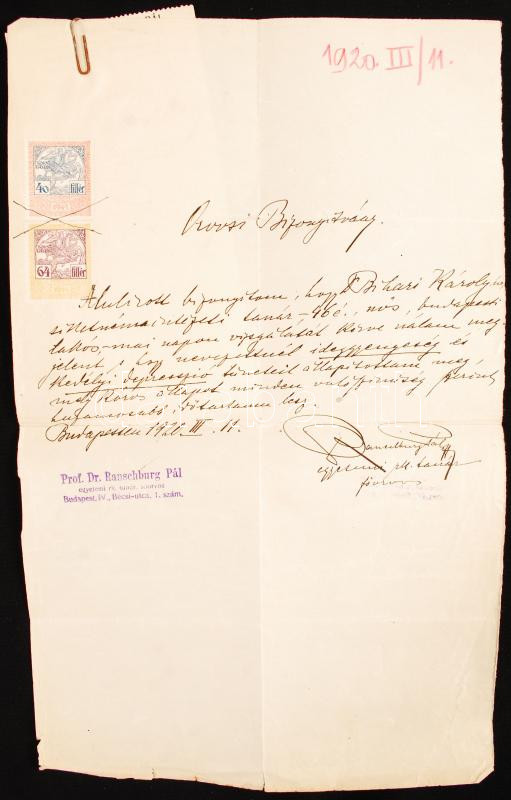 PÁL
1920. III/11.
40 fillér
64 fillér
Orvosi Bizonyítvány.
Alulírott bizonyítom, hogy Dr Bihari Károly
siketnémaintézeti tanár - 46 é., nős, budapesti
lakós - mai napon vizsgálatát kérve nálam meg
jelent, s hogy nevezettnél ideggyengeség és
kedélyi depresszió tüneteit állapítottam meg,
mely kóros állapot minden valószínűség szerint
huzamosabb időtartamu lesz.
Budapesten 1920. III. 11.
Ranschburg Pál
egyetemi rk. tanár
főorvos
Prof. Dr. Ranschburg Pál
egyetemi rk. tanár, főorvos
Budapest, IV., Bécsi-utca, 1. szám.